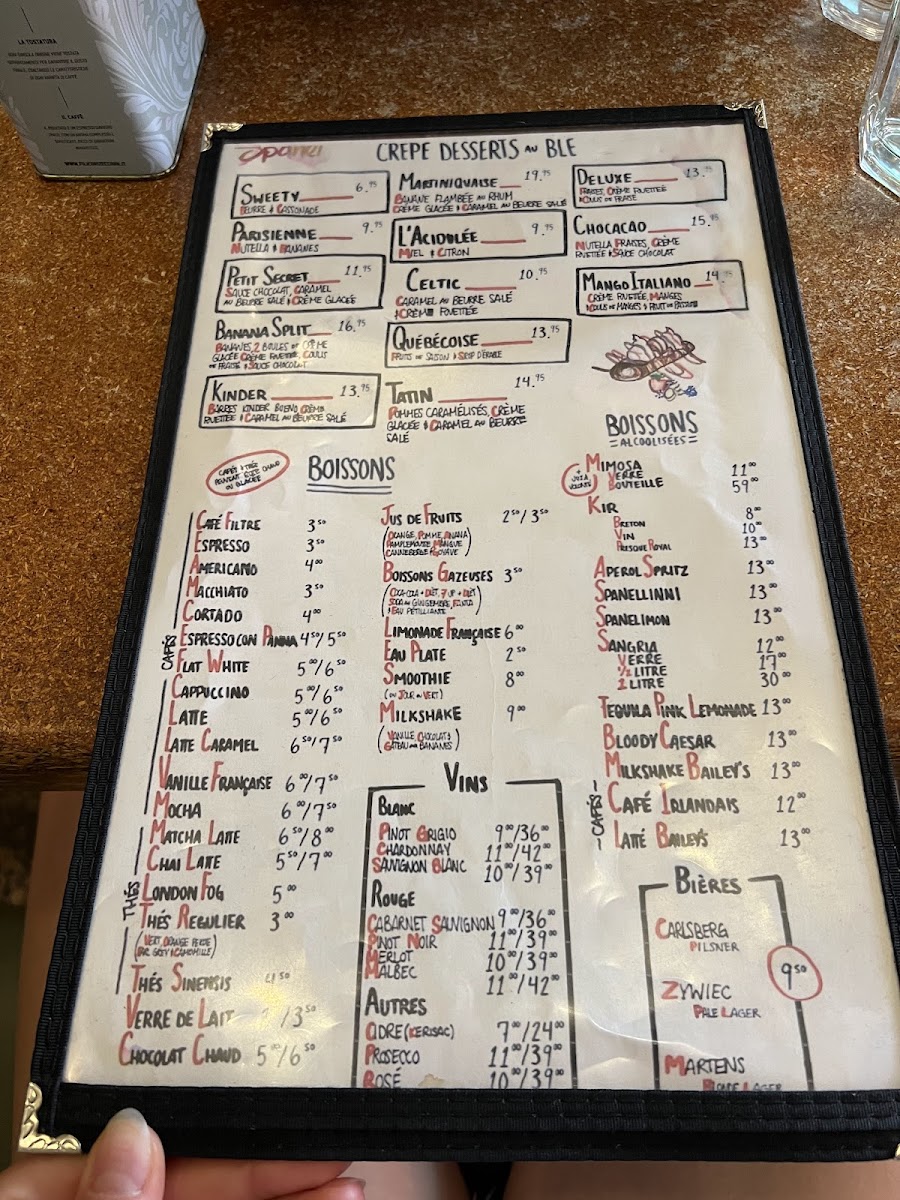 LA TOSTATURA
IL CAFFÈ
Spanel
CREPE DESSERTS AU BLE
SWEETY 6.95
BEURRE & CASSONADE
PARISIENNE 9.95
NUTELLA & BANANES
PETIT SECRET 11.95
SAUCE CHOCOLAT, CARAMEL
AU BEURRE SALÉ & CRÈME GLACÉE
BANANA SPLIT 16.95
BANANES, 2 BOULES DE CRÈME
GLACÉE CRÈME FOUETTÉE, COULIS
DE FRAISE & SAUCE CHOCOLAT
KINDER 13.95
BARRES KINDER BUENO, CRÈME
FOUETTÉE & CARAMEL AU BEURRE SALÉ
MARTINIQUAISE 19.95
BANANE FLAMBÉE AU RHUM
CRÈME GLACÉE & CARAMEL AU BEURRE SALÉ
L'ACIDULÉE 9.95
MIEL & CITRON
CELTIC 10.95
CARAMEL AU BEURRE SALÉ
& CRÈME FOUETTÉE
QUÉBÉCOISE 13.95
FRUITS DE SAISON & SIROP D'ÉRABLE
TATIN 14.95
POMMES CARAMÉLISÉS, CRÈME
GLACÉE & CARAMEL AU BEURRE
SALÉ
DELUXE 13.95
FRAISES, CRÈME FOUETTÉE
& COULIS DE FRAISE
CHOCACAO 15.95
NUTELLA FRAISES, CRÈME
FOUETTÉE & SAUCE CHOCOLAT
MANGO ITALIANO 14.95
CRÈME FOUETTÉE, MANGES
& COULIS DE MANGES & FRUIT DE PASSION
CAFÉS & THÉS
PEUVENT ÊTRE CHAUD
OU GLACÉE
BOISSONS
CAFÉS
CAFÉ FILTRE 3.50
ESPRESSO 3.50
AMERICANO 4.00
MACCHIATO 3.50
CORTADO 4.00
ESPRESSO CON PANNA 4.50/5.50
FLAT WHITE 5.00/6.50
CAPPUCCINO 5.00/6.50
LATTE 5.00/6.50
LATTE CARAMEL 6.50/7.50
VANILLE FRANÇAISE 6.00/7.50
MOCHA 6.00/7.50
MATCHA LATTE 6.50/8.00
CHAI LATTE 5.50/7.00
THÉS
LONDON FOG 5.00
THÉS REGULIER 3.00
THÉS SINENSIS 4.50
VERRE DE LAIT /3.50
CHOCOLAT CHAUD 5.00/6.50
JUS DE FRUITS 2.50/3.50
(ORANGE, POMME, ANANA
PAMPLEMOUSE, MANGUE
CANNEBERGE & GOYAVE)
BOISSONS GAZEUSES 3.50
(COCA-COLA + DIÈT, 7 UP + DIÈT
SODA AU GINGEMBRE, FANTA
& EAU PÉTILLANTE)
LIMONADE FRANÇAISE 6.00
EAU PLATE 2.50
SMOOTHIE 8.00
(DU JOUR OU VERT)
MILKSHAKE 9.00
(VANILLE, CHOCOLAT &
GÂTEAU AUX BANANES)
VINS
BLANC
PINOT GRIGIO 9.00/36.00
CHARDONNAY 11.00/42.00
SAUVIGNON BLANC 10.00/39.00
ROUGE
CABARNET SAUVIGNON 9.00/36.00
PINOT NOIR 11.00/39.00
MERLOT 10.00/39.00
MALBEC 11.00/42.00
AUTRES
CIDRE (KERISAC) 7.00/24.00
PROSECCO 11.00/39.00
ROSÉ 10.00/39.00
BOISSONS
=ALCOOLISÉES=
MIMOSA
VERRE 11.00
BOUTEILLE 59.00
KIR
BRETON 8.00
VIN 10.00
PRESQUE ROYAL 13.00
APEROL SPRITZ 13.00
SPANELLINNI 13.00
SPANELIMON 13.00
SANGRIA
VERRE 12.00
1/2 LITRE 17.00
1 LITRE 30.00
TEQUILA PINK LEMONADE 13.00
BLOODY CAESAR 13.00
MILKSHAKE BAILEY'S 13.00
-CAFÉS-
CAFÉ IRLANDAIS 12.00
LATTÉ BAILEYS 13.00
BIÈRES
CARLSBERG
PILSNER
9.50
ZYWIEC
PALE LAGER
MARTENS
BLONDE LAGER